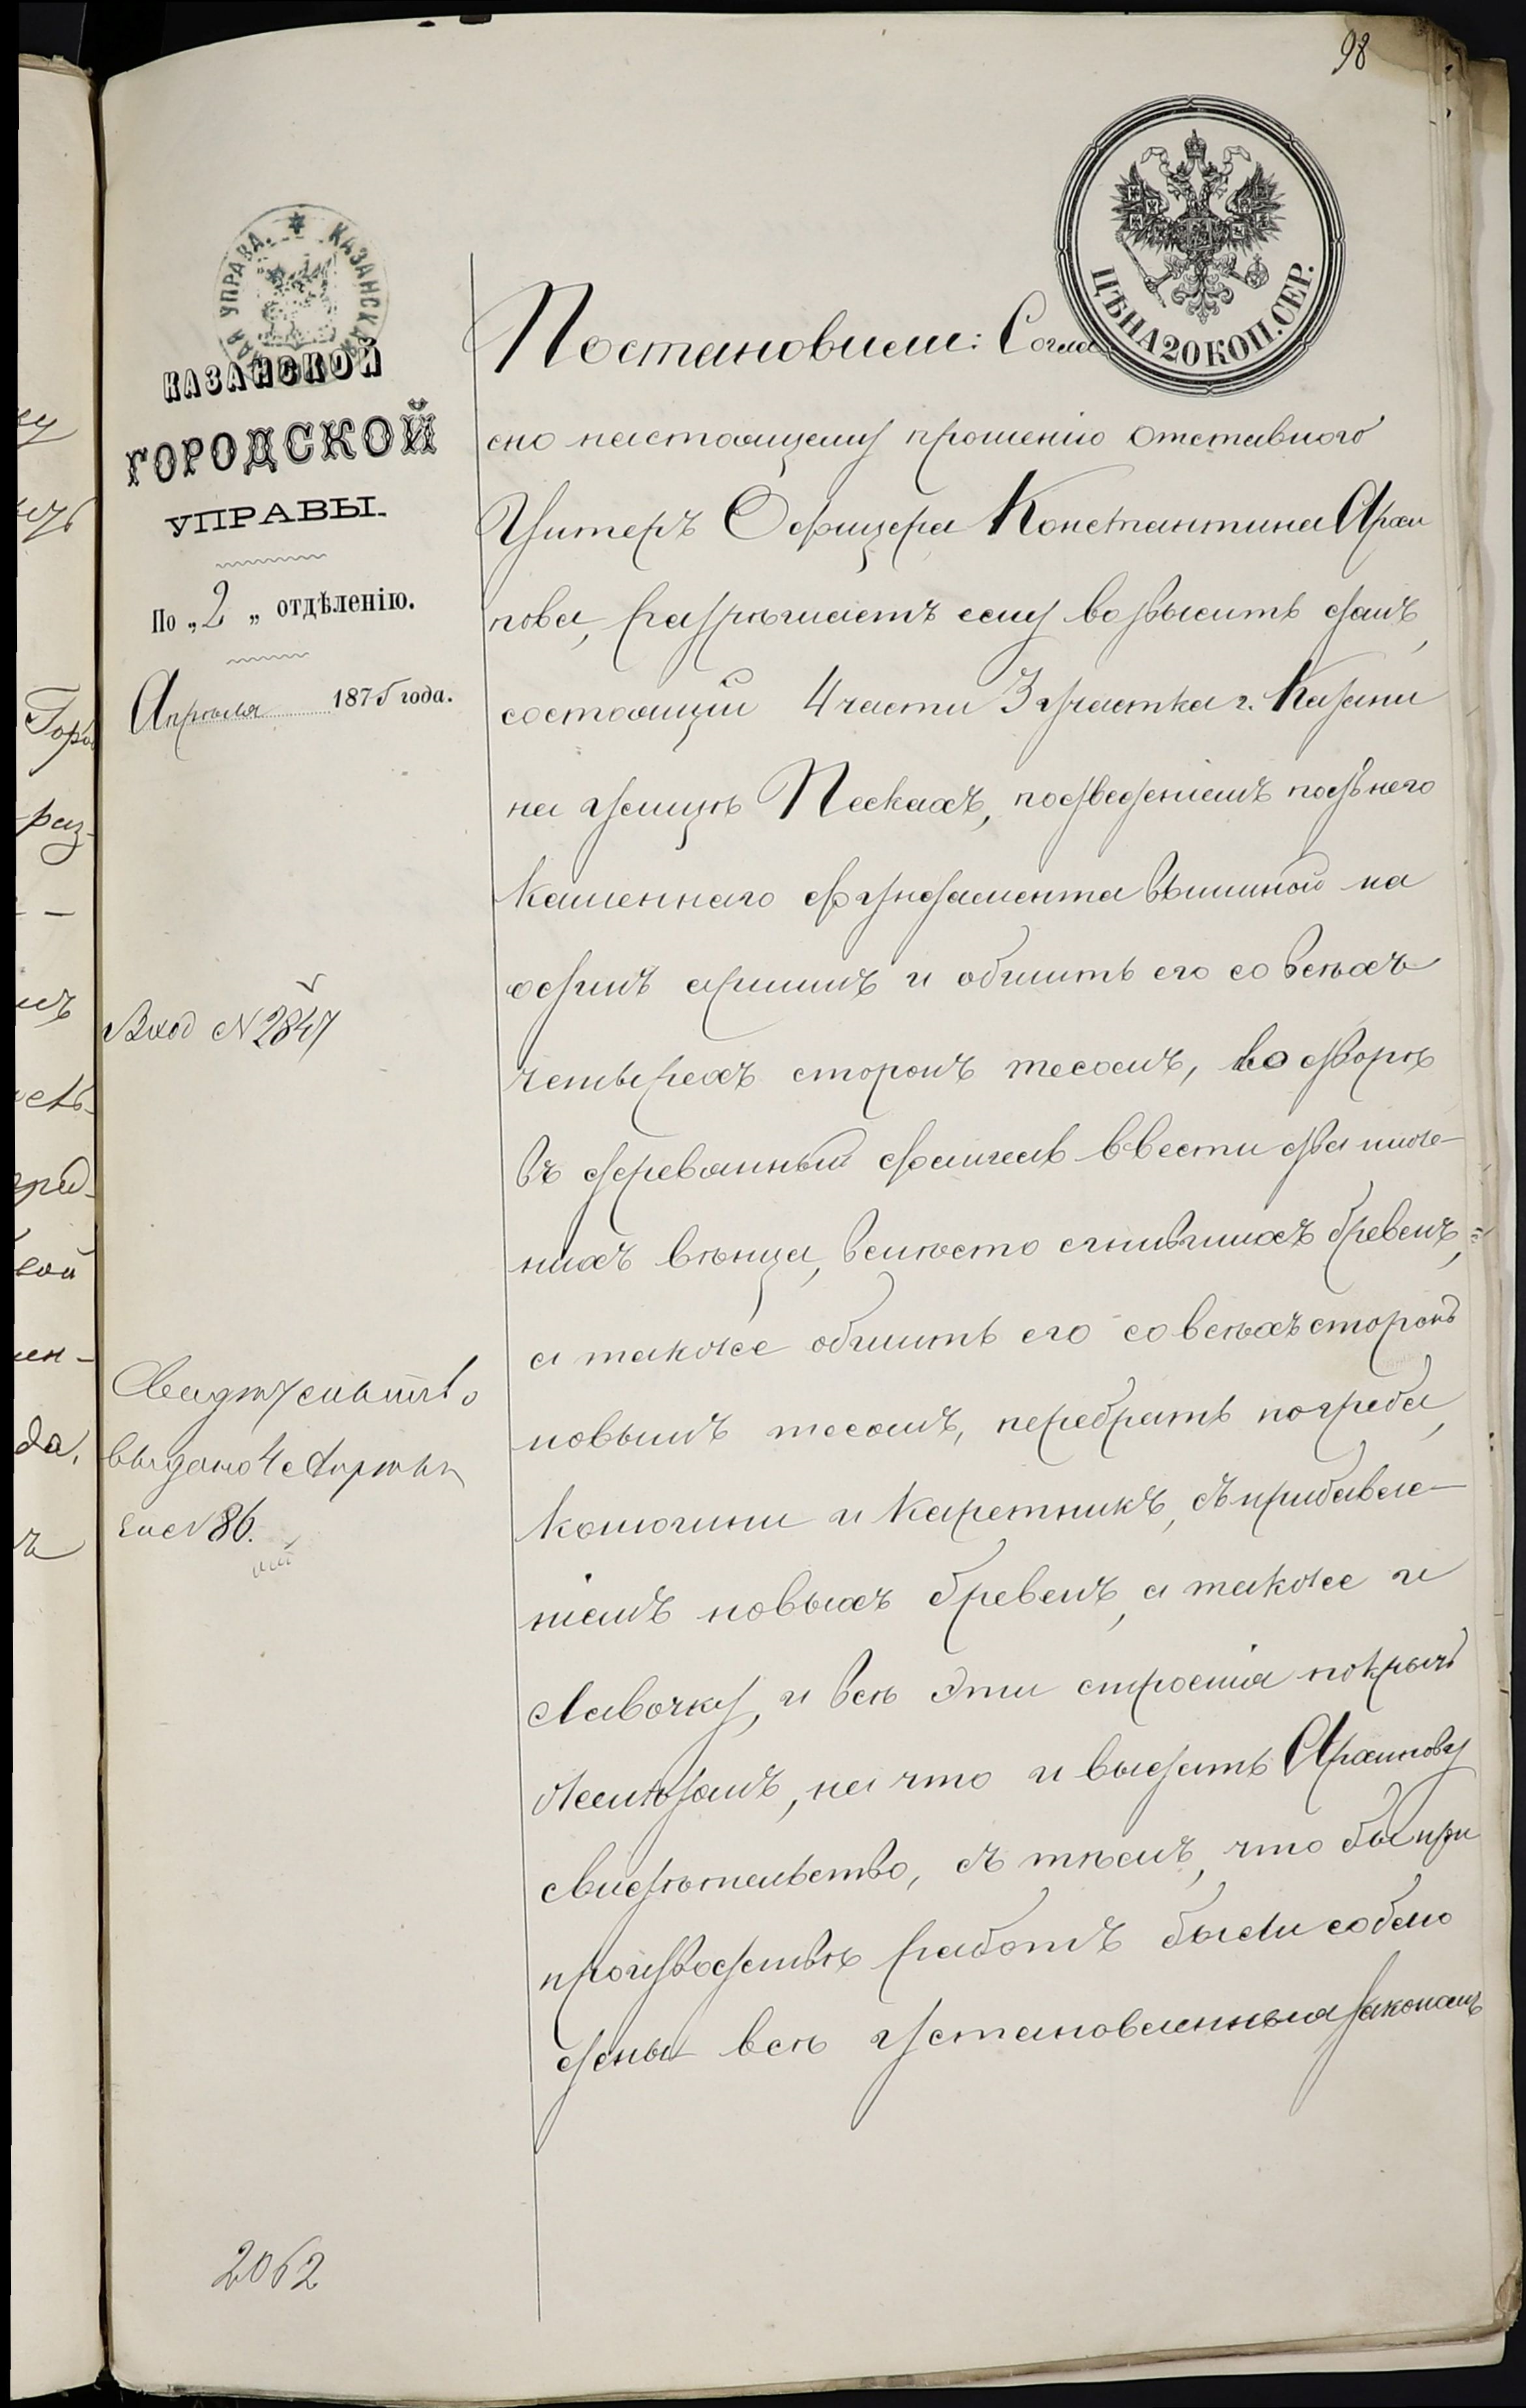 98
КАЗАНСКАЯ УПРАВА.
ЦѢНА 20 КОП. СЕР.
КАЗАНСКОЙ
ГОРОДСКОЙ
УПРАВЫ.
По „2„ отдѣленію.
Апрѣля 1875 года.
Вход № 2847
Свидѣтельство
выдано 4 Апрѣля
за № 86.
2062
Постановили: Соглас
сно настоящему прошенію отставного
Унтеръ Офицера Константина Архи
пова, разрѣшаетъ ему возвысить домъ,
состоящій 4 части 3 участка г. Казани
на улицѣ Пескахъ, подведеніемъ подъ него
каменнаго фундамента вышиной на
одинъ аршинъ и обшить его со всѣхъ
четырехъ сторонъ тесомъ, во дворѣ
въ деревянный флигель ввести два ниж-
нихъ вѣнца, вмѣсто сгнившихъ бревенъ,
а также обшить его со всѣхъ сторонъ
новымъ тесомъ, перебрать погреба,
конюшни и каретникъ, съ прибавле-
ніемъ новыхъ бревенъ, а также и
лавочку, и всѣ эти строенія покрыть
желѣзомъ, на что и выдать Архипову
свидѣтельство, съ тѣмъ, что бы при
производствѣ работъ были соблю
дены всѣ установленныя закономъ